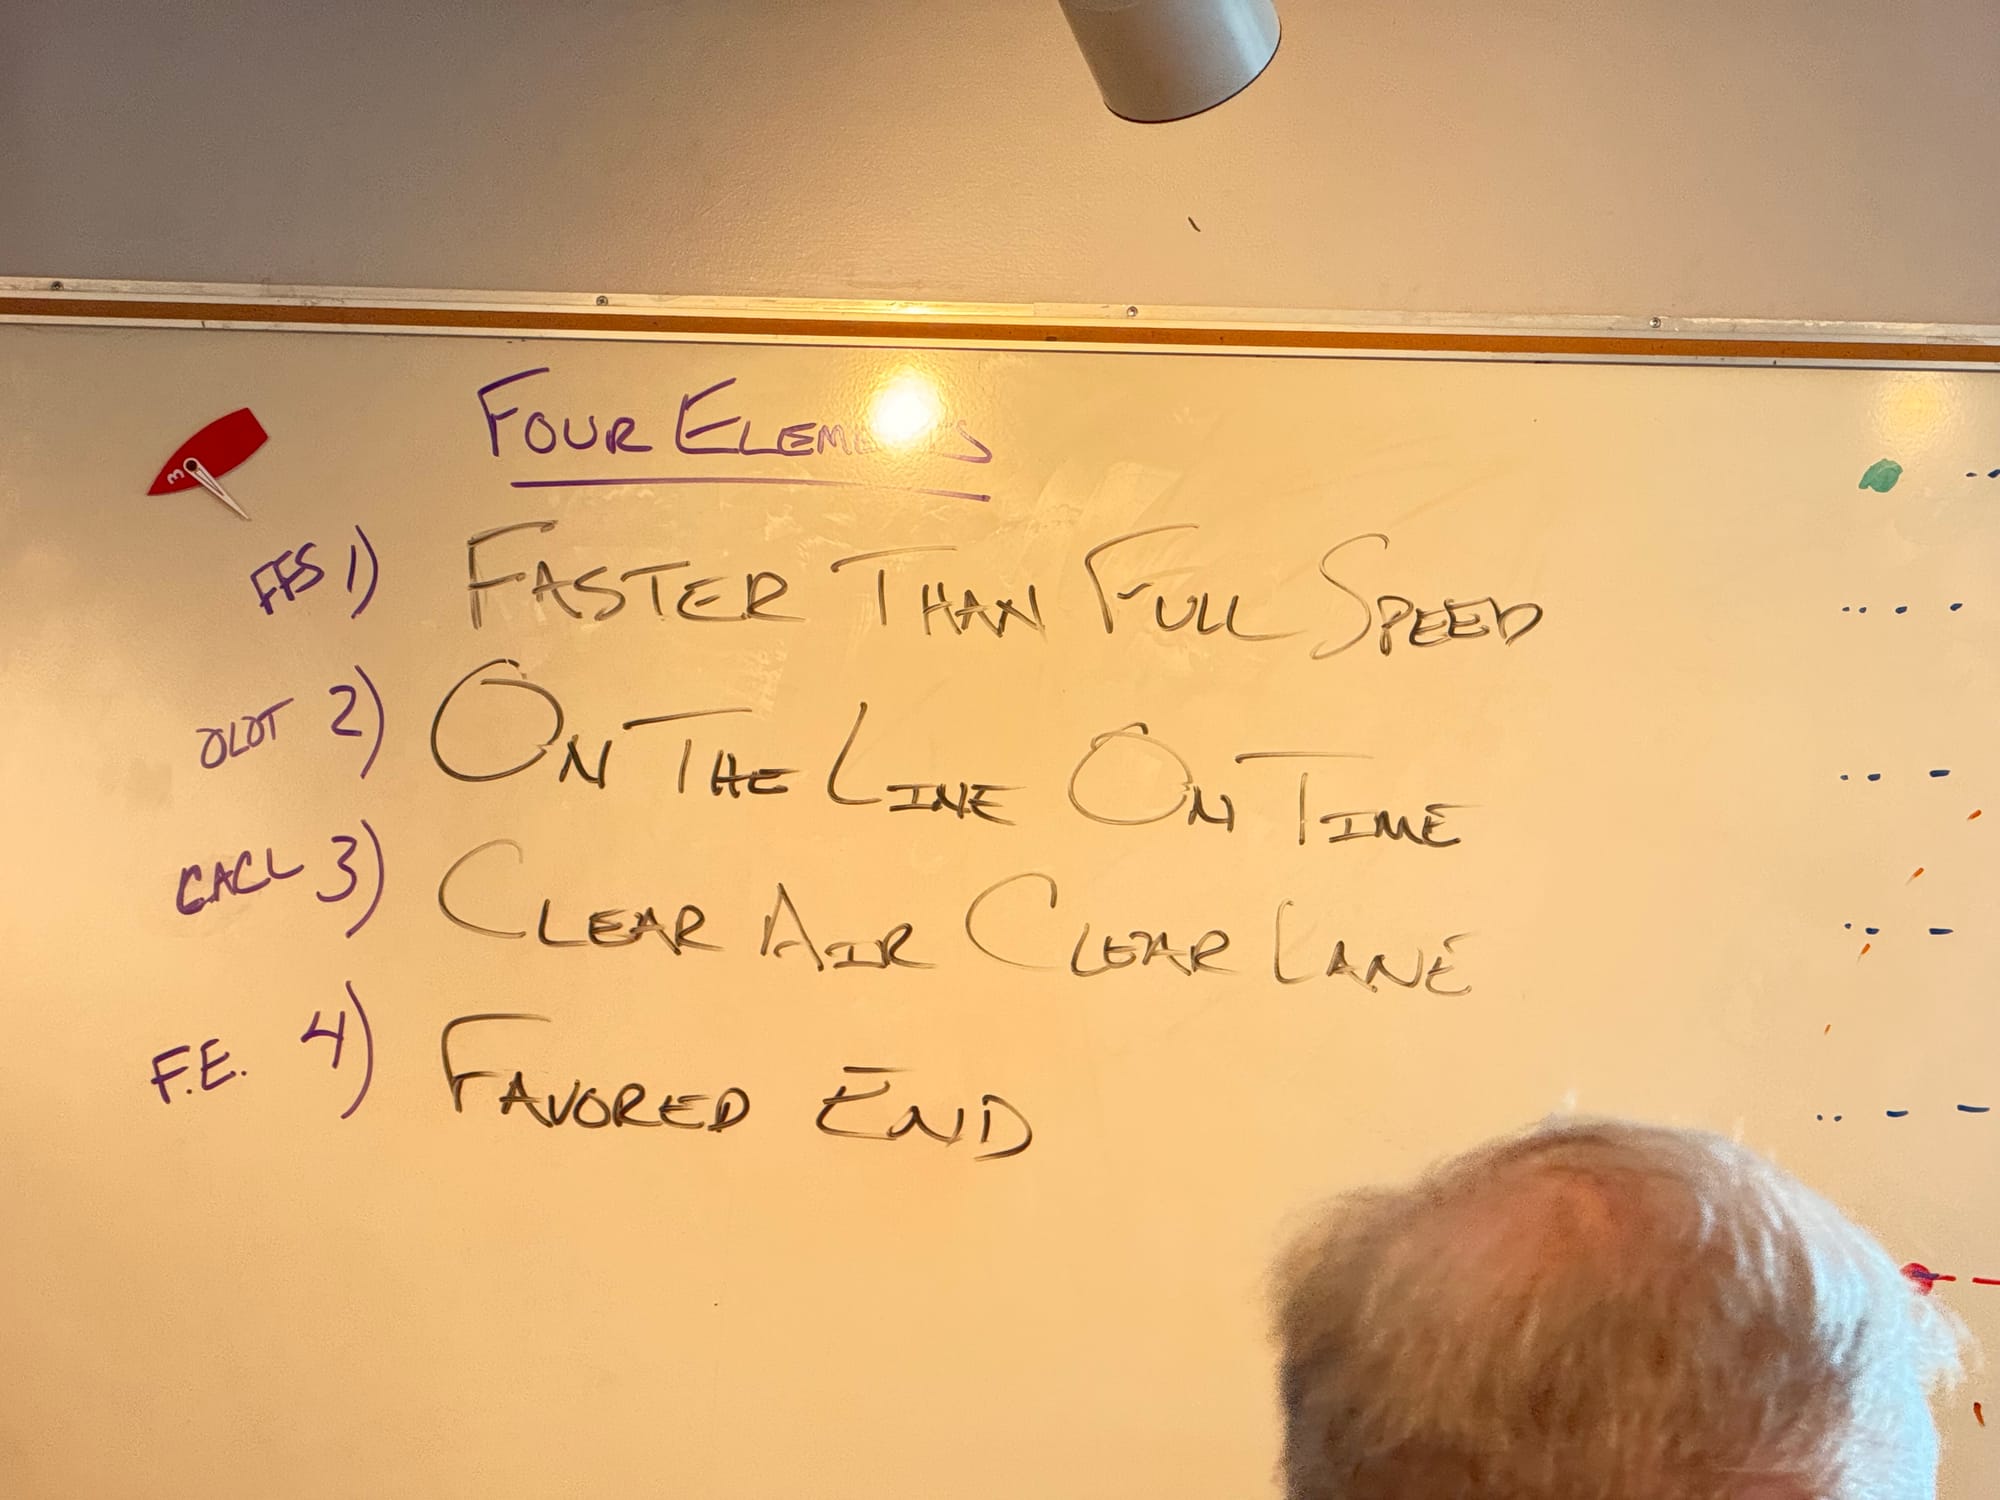 FOUR ELEMENTS
FFS 1) FASTER THAN FULL SPEED
OLOT 2) ON THE LINE ON TIME
CACL 3) CLEAR AIR CLEAR LANE
F.E. 4) FAVORED END